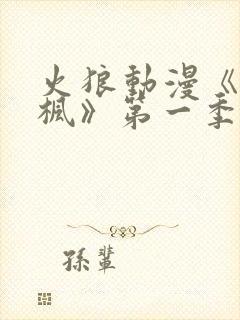 火狼動漫《
楓》第一季
孫輩